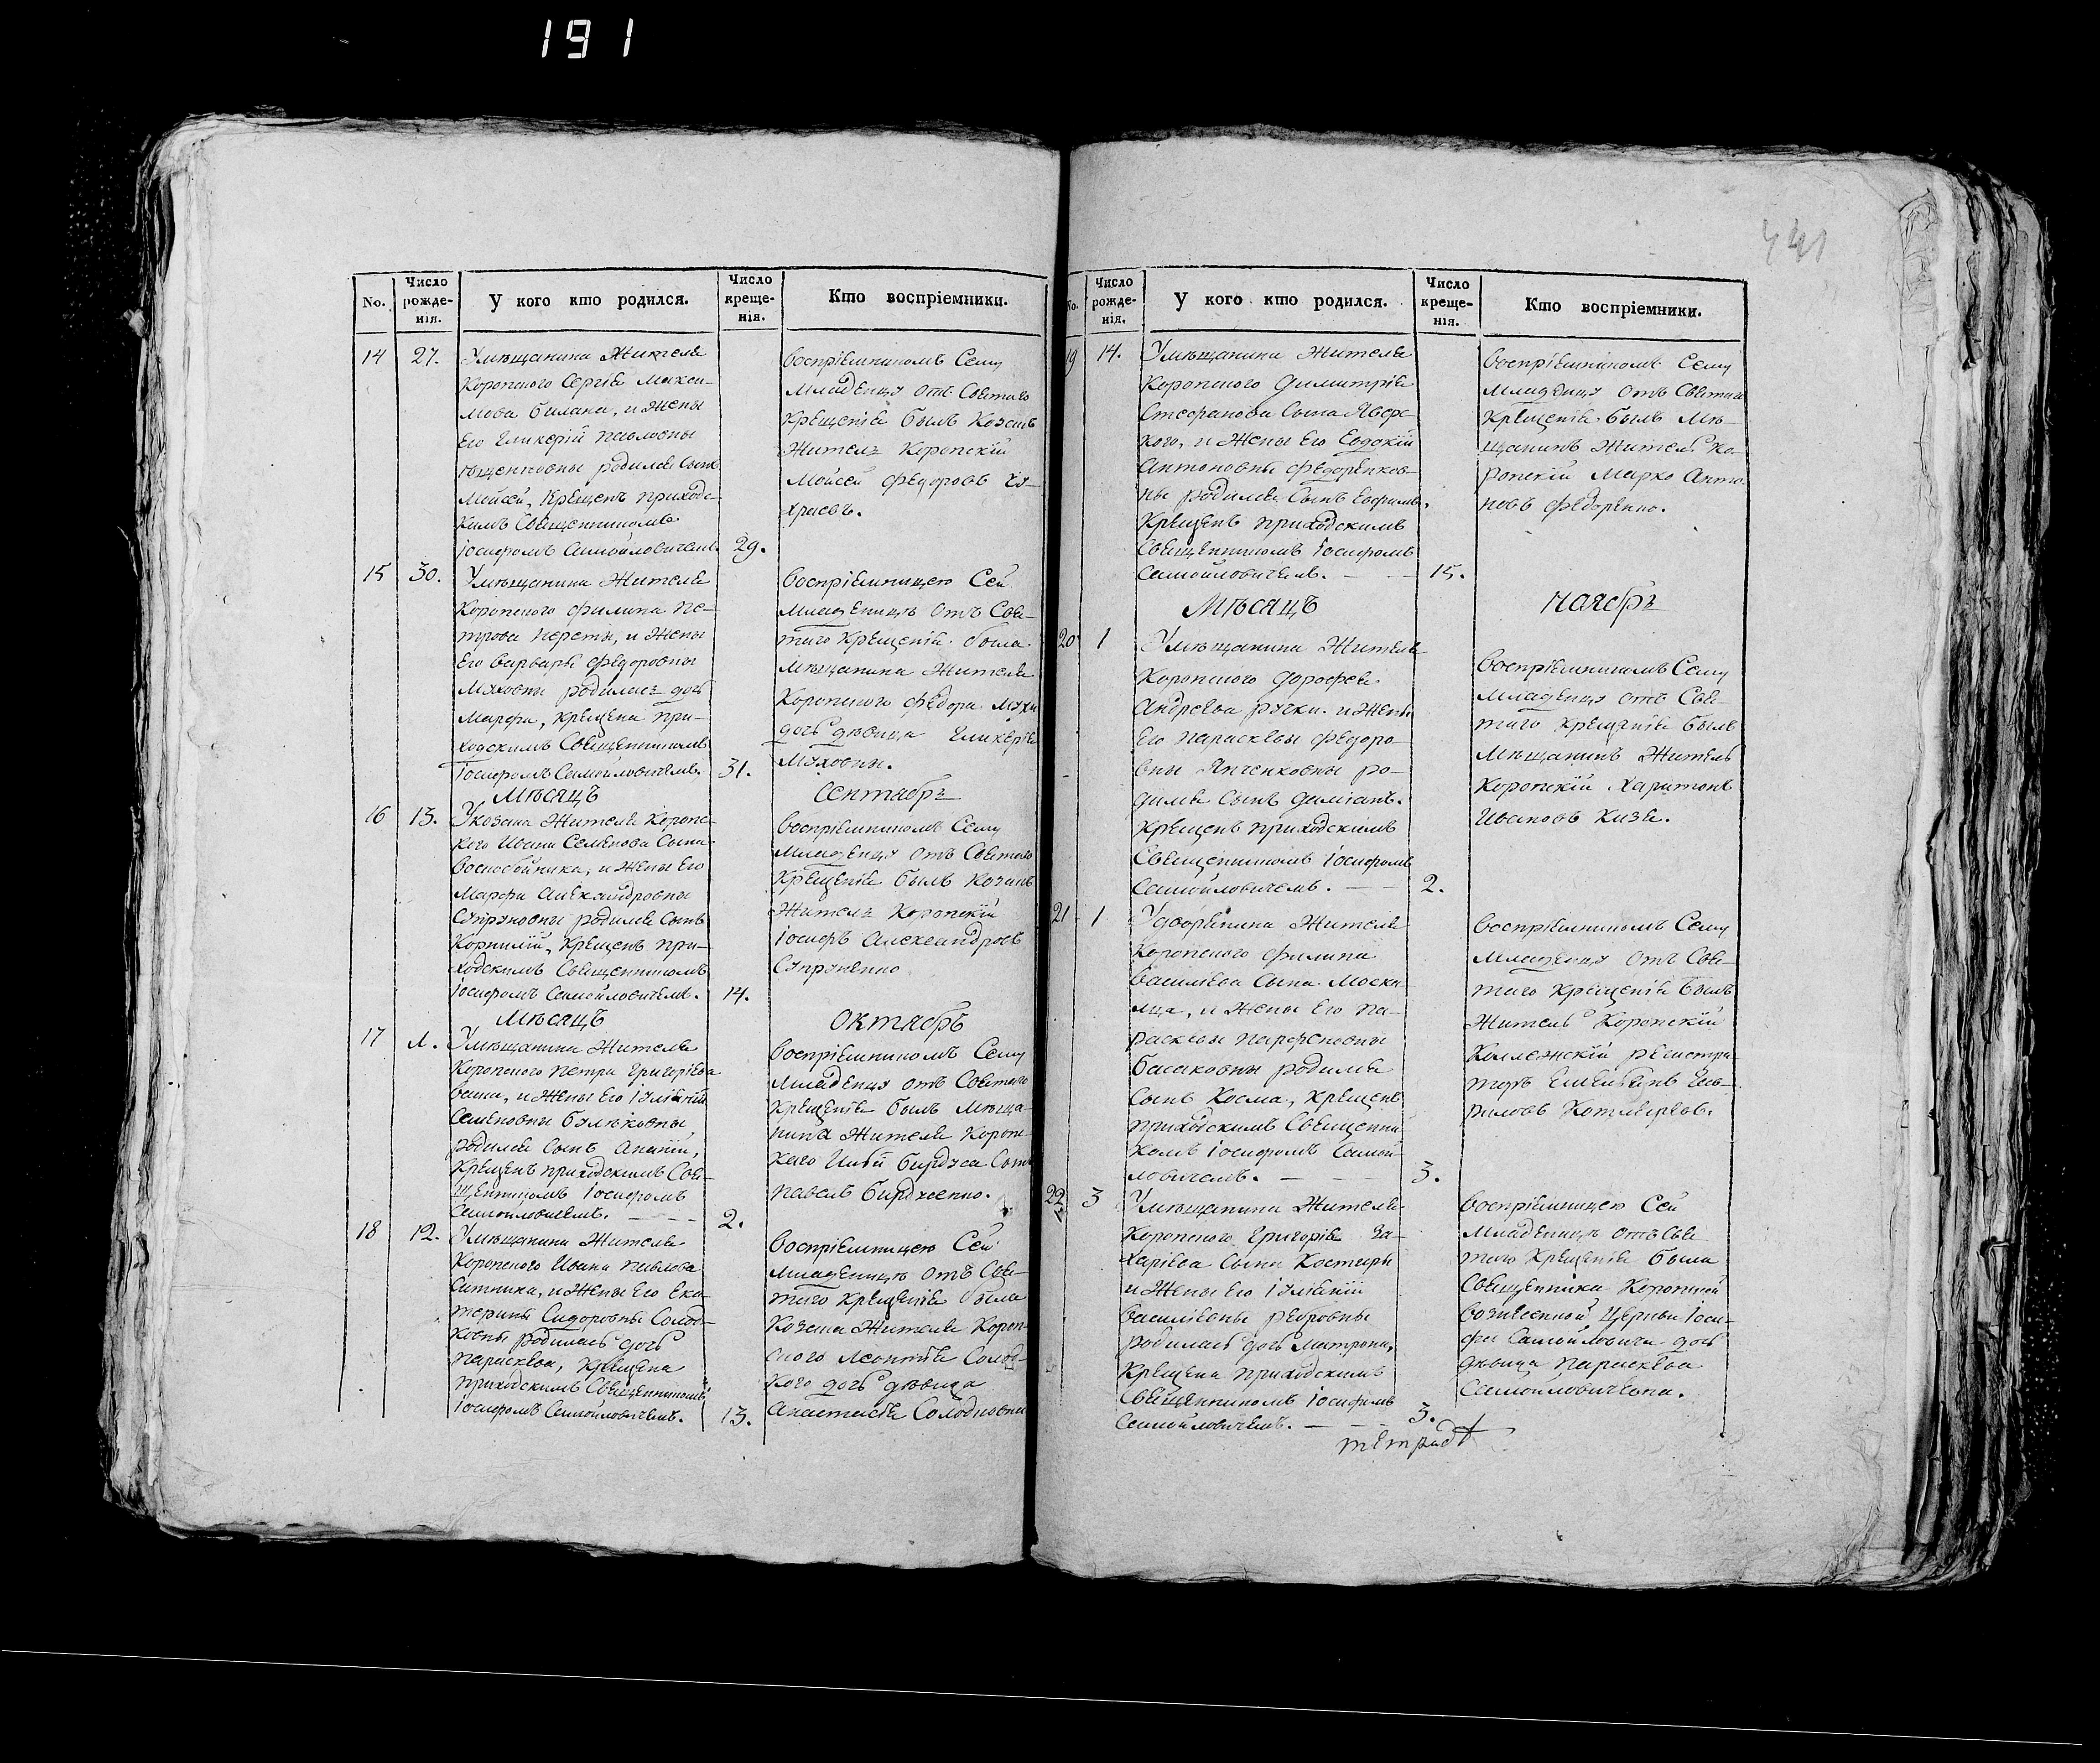 191
441
No.
Число рожде-нія.
У кого кто родился.
Число креще-нія.
Кто воспріемники.
14 27. Умѣщанина Жителя
Коропского Сергія Макси-
мова Билана, и Жены
Его Гликеріи Павловны
родился Сынъ
Мойсей, Крещенъ приходс-
кимъ Священникомъ
Іосифомъ Самойловичемъ. 29.
Воспріемникомъ Сему
Младенцу отъ Святаго
Крещенія былъ Козакъ
Житель Коропскій
Мойсей Федоровъ
15 30. Умѣщанина Жителя
Коропского Филипа Пе-
трова и Жены
Его Варвары Федоровны
Муховны родилась дочь
Марфа, Крещена при-
ходскимъ Священникомъ
Іосифомъ Самойловичемъ. 31.
Воспріемницею Сей
Младеницѣ отъ Свя-
таго Крещенія была
Мѣщанина Жителя
Коропского Федора Мухи
дочь дѣвица Гликерія
Муховны.
Мѣсяцъ Сентябрь
16 13. Укозака Жителя Коропс-
кого Ивана Семенова Сына
Воскобойника, и Жены Его
Марфы Александровны
Супруновны родился Сынъ
Корнилій, Крещенъ при-
ходскимъ Священникомъ
Іосифомъ Самойловичемъ. 14.
Воспріемникомъ Сему
Младенцу отъ Святаго
Крещенія былъ Козакъ
Житель Коропскій
Іосифъ Александровъ
Супруненко
Мѣсяцъ Октябрь
17 Умѣщанина Жителя
Коропского Петра Григоріева
и Жены Его Іуліяніи
Семеновны
родился Сынъ Ананій,
Крещенъ приходскимъ Свя-
щенникомъ Іосифомъ
Самойловичемъ. 2.
Воспріемникомъ Сему
Младенцу отъ Святаго
Крещенія былъ Мѣща-
нина Жителя Коропс-
кого Сынъ
Павелъ
18 12. Умѣщанина Жителя
Коропского Ивана Павлова
Ситника, и Жены Его Ека-
терины Сидоровны Солод-
ковны родилась дочь
Параскева, Крещена
приходскимъ Священникомъ
Іосифомъ Самойловичемъ. 13.
Воспріемницею Сей
Младеницѣ отъ Свя-
таго Крещенія была
Козака Жителя Короп-
ского Леонтія Солод-
кого дочь дѣвица
Анастасія Солодковна
No.
Число рожде-нія.
У кого кто родился.
Число креще-нія.
Кто воспріемники.
19 14. Умѣщанина Жителя
Коропского Димитрія
Стефанова Сына Яворс-
кого, и Жены Его Евдокіи
Антоновны Федоренков-
ны родился Сынъ Евфимъ.
Крещенъ приходскимъ
Священникомъ Іосифомъ
Самойловичемъ. 15.
Воспріемникомъ Сему
Младенцу отъ Святаго
Крещенія былъ Мѣ-
щанинъ Житель Ко-
ропскій Марко Анто-
новъ Федоренко.
Мѣсяцъ Ноябрь
20 1 Умѣщанина Жителя
Коропского Дорофея
Андреева Ручки и Жены
Его Параскевы Федоро-
вны Янченковны ро-
дился Сынъ Даміанъ.
Крещенъ приходскимъ
Священникомъ Іосифомъ
Самойловичемъ. 2.
Воспріемникомъ Сему
Младенцу отъ Свя-
таго Крещенія былъ
Мѣщанинъ Житель
Коропскій Харитонъ
Ивановъ Кизя.
21 1 Удворянина Жителя
Коропского Филипа
Василіева Сына Моска-
льца, и Жены Его Па-
раскевы Парфеновны
Басаковны родился
Сынъ Косма, Крещенъ
приходскимъ Священни-
комъ Іосифомъ Самой-
ловичемъ. 3.
Воспріемникомъ Сему
Младенцу отъ Свя-
таго Крещенія былъ
Житель Коропскій
Коллежскій регистра-
торъ
22 3 Умѣщанина Жителя
Коропского Григорія За-
харіева Сына Костыри
и Жены Его Іуліяніи
Василіевны
родилась дочь Матрона,
Крещена приходскимъ
Священникомъ Іосифомъ
Самойловичемъ. 3.
Воспріемницею Сей
Младеницѣ отъ Свя-
таго Крещенія была
Священника Коропской
Вознесенской Церкви Іоси-
фа Самойловича дочь
дѣвица Параскева
Самойловичевна.